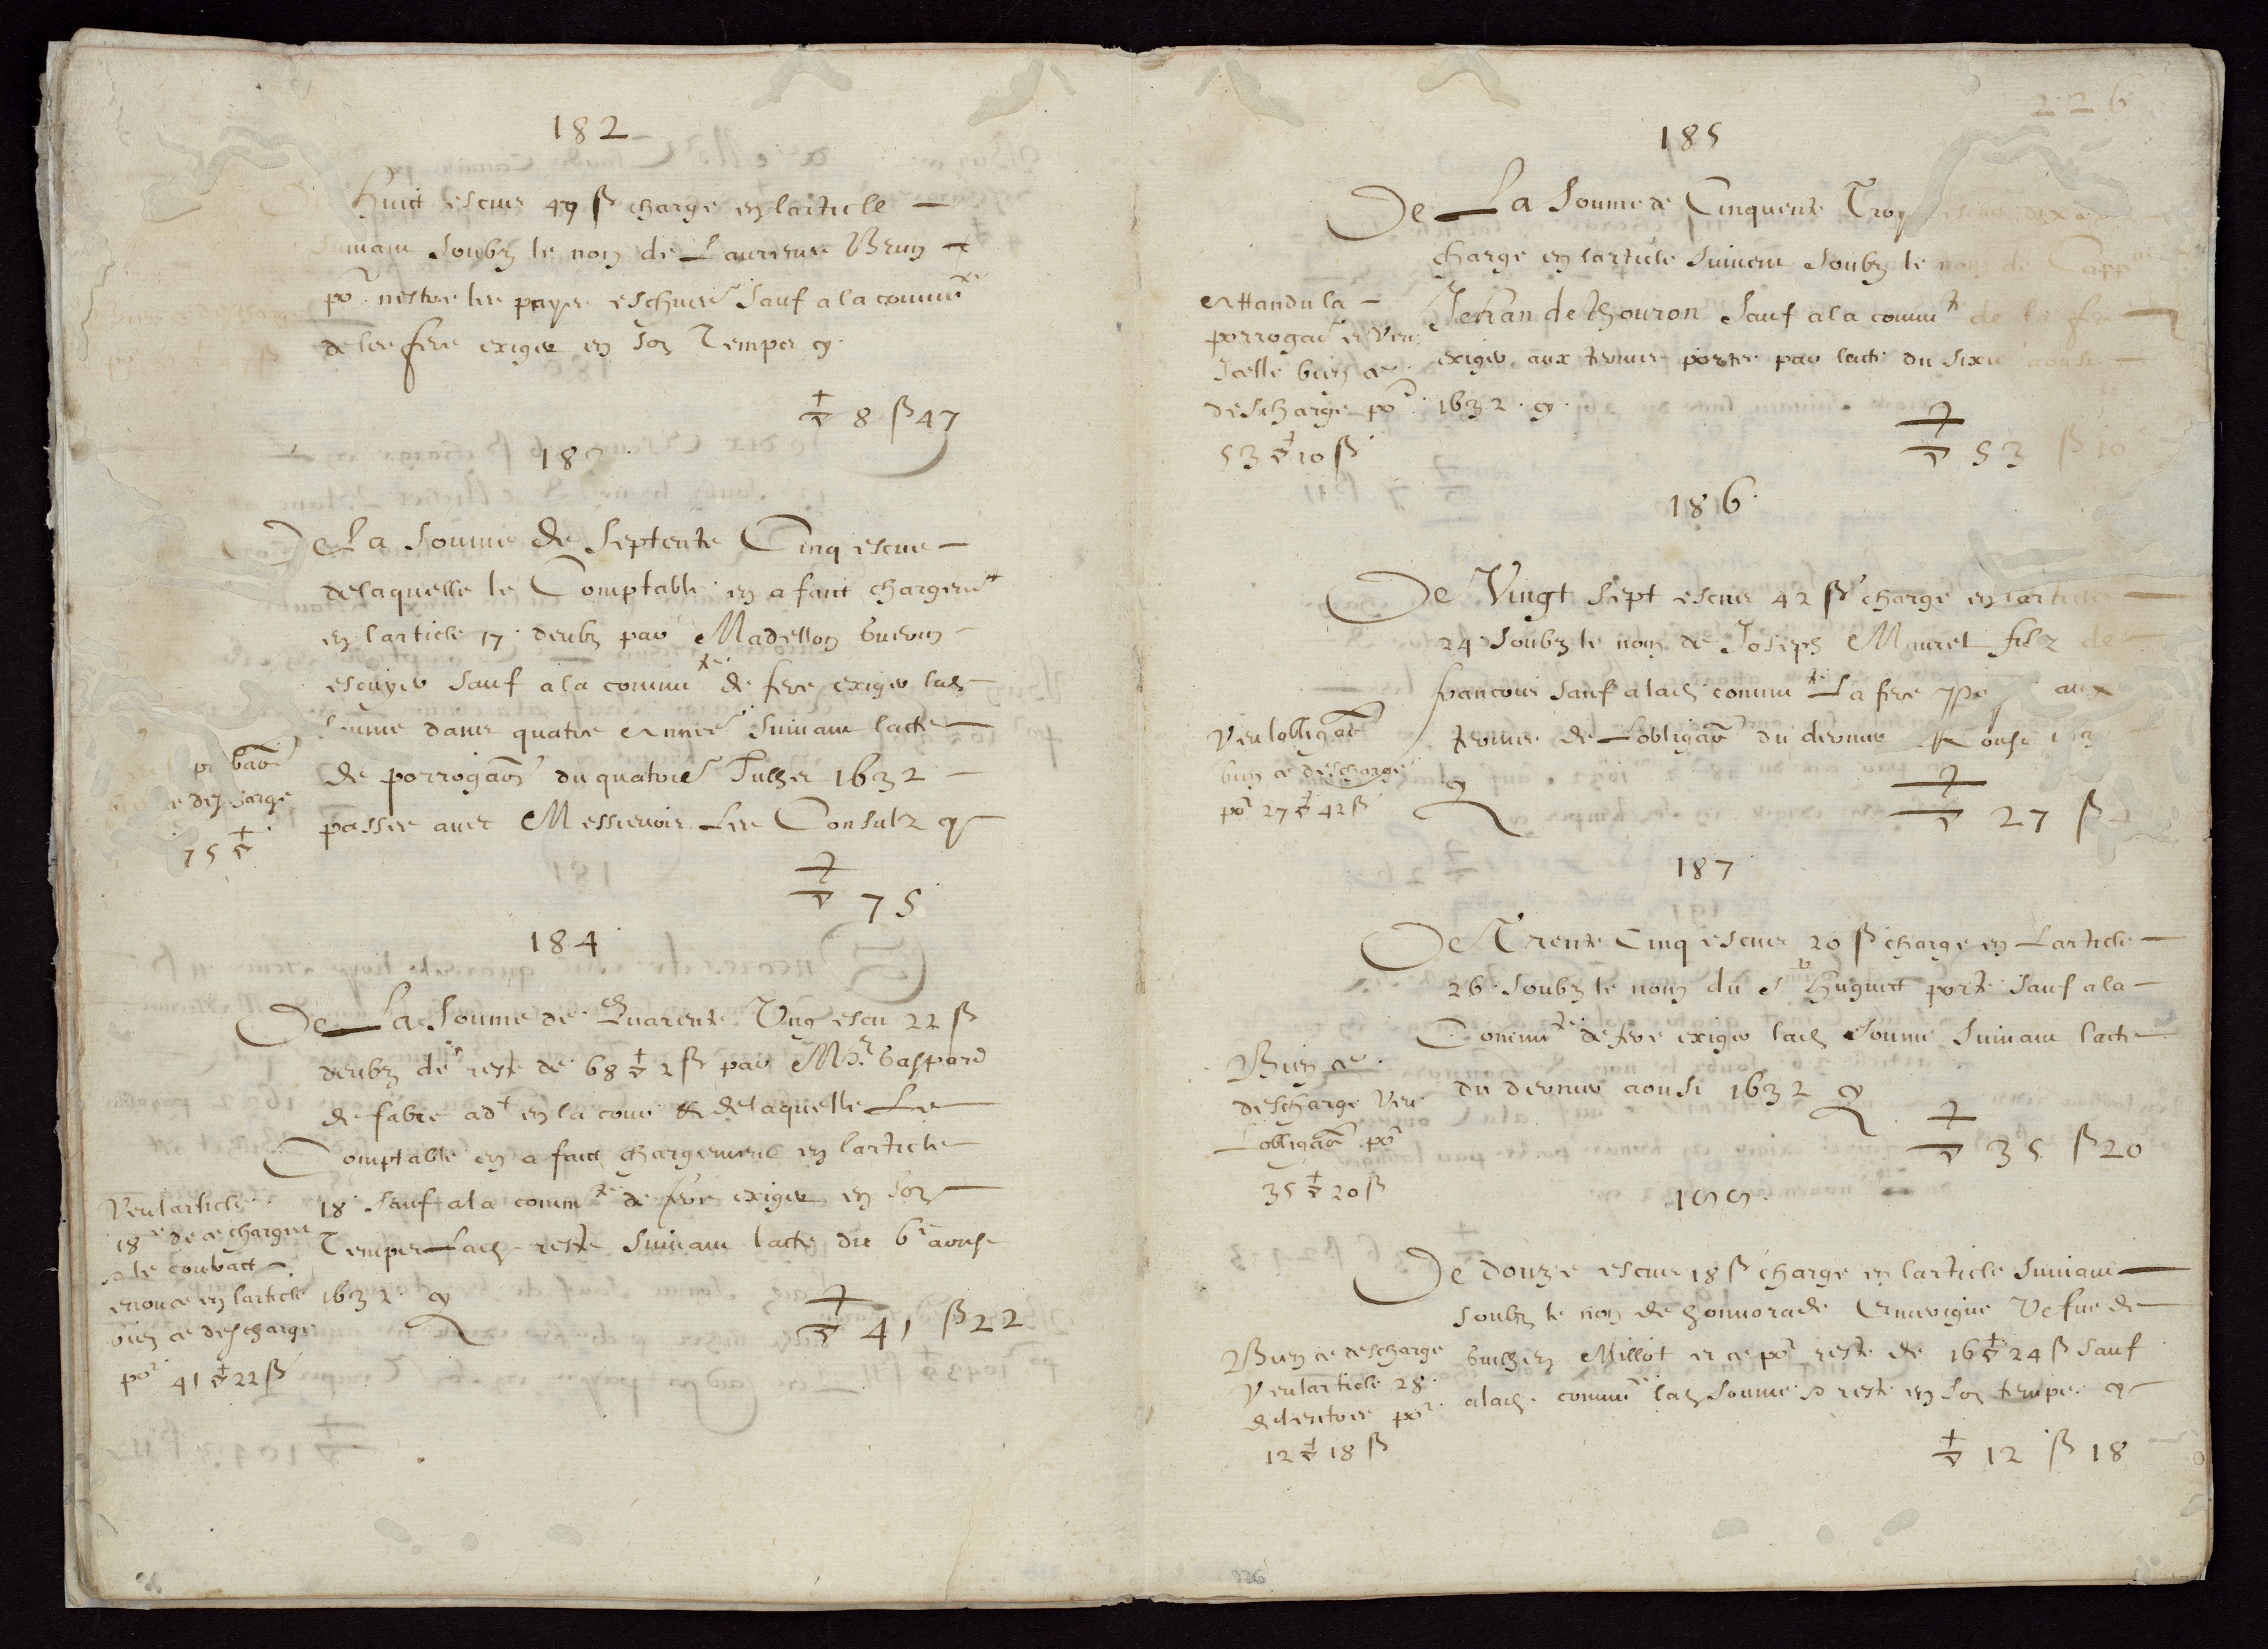 182
Huict escus 47 ß charge en larticle
suivant soubz le nom de Laurens Brun
po.r nestre les payes escheues sauf a la commu.te
de les fere exiger en son Temps cy
8 ß 47
bien ce descharge
183
De La Somme de Septente Cinq escus
de laquelle le Comptable en a faict chargemt
en larticle 17 deubz par Madellon
escuyer sauf a la commu.te de fere exiger lad
somme dans quatre annees suivant lacte
de porrogaon du quatorze Julhet 1632
passee avec Messieurs Les Consulz cy
ce descharge
75
75
184
De La Somme de Quarente Ung escu 22 ß
deubz de reste de 68 2 ß par M.e Gaspard
de fabre ad.t en la cour & de laquelle Le
Comptable en a faict chargement en larticle
18 sauf a la comm.te de fere exiger en son
Temps Lad. reste suivant lacte du 6.e aoust
1632 cy
41 ß 22
Veu larticle
18.e de ce chargement
& le contract
enonce en larticle
bien ce descharge
po.r 41 22 ß
226
185
De La Somme de Cinquente Troys escus dix
charge en larticle suivant soubz le nom de Capp.ne
Jehan de Thouron sauf a la commu.te de la fere
exiger aux termes portes par lacte du sixie aoust
1632 cy
53 ß 10
Attandu la
porrogaon et veu
Icelle bien ce
descharge po.r
53 10 ß
186
De Vingt sept escus 42 ß charge en larticle
24 soubz le nom de Joseph Mouret filz de
francois sauf a lad commu.te La fere aux
termes de Lobligaon du dernier Aoust
cy
27 ß
Veu lobligaon
bien ce descharge
po.r 27 42 ß
187
De Trente Cinq escus 20 ß charge en Larticle
26 soubz le nom du Sr Huguet porte sauf a la
Commu.te de fere exiger lad Somme suivant lacte
du dernier aoust 1632 cy
35 ß 20
Bien ce
descharge Veu
Lobligaon po.r
35 20 ß
188
De douze escus 18 ß charge en larticle suivant
soubz le nom de honnorade Vefue de
Guilhen Millot et ce po.r reste de 16 24 ß sauf
a lad. commu.te lad somme & reste en son temps cy
12 ß 18
Bien ce descharge
Veu larticle 28
po.r
12 18 ß